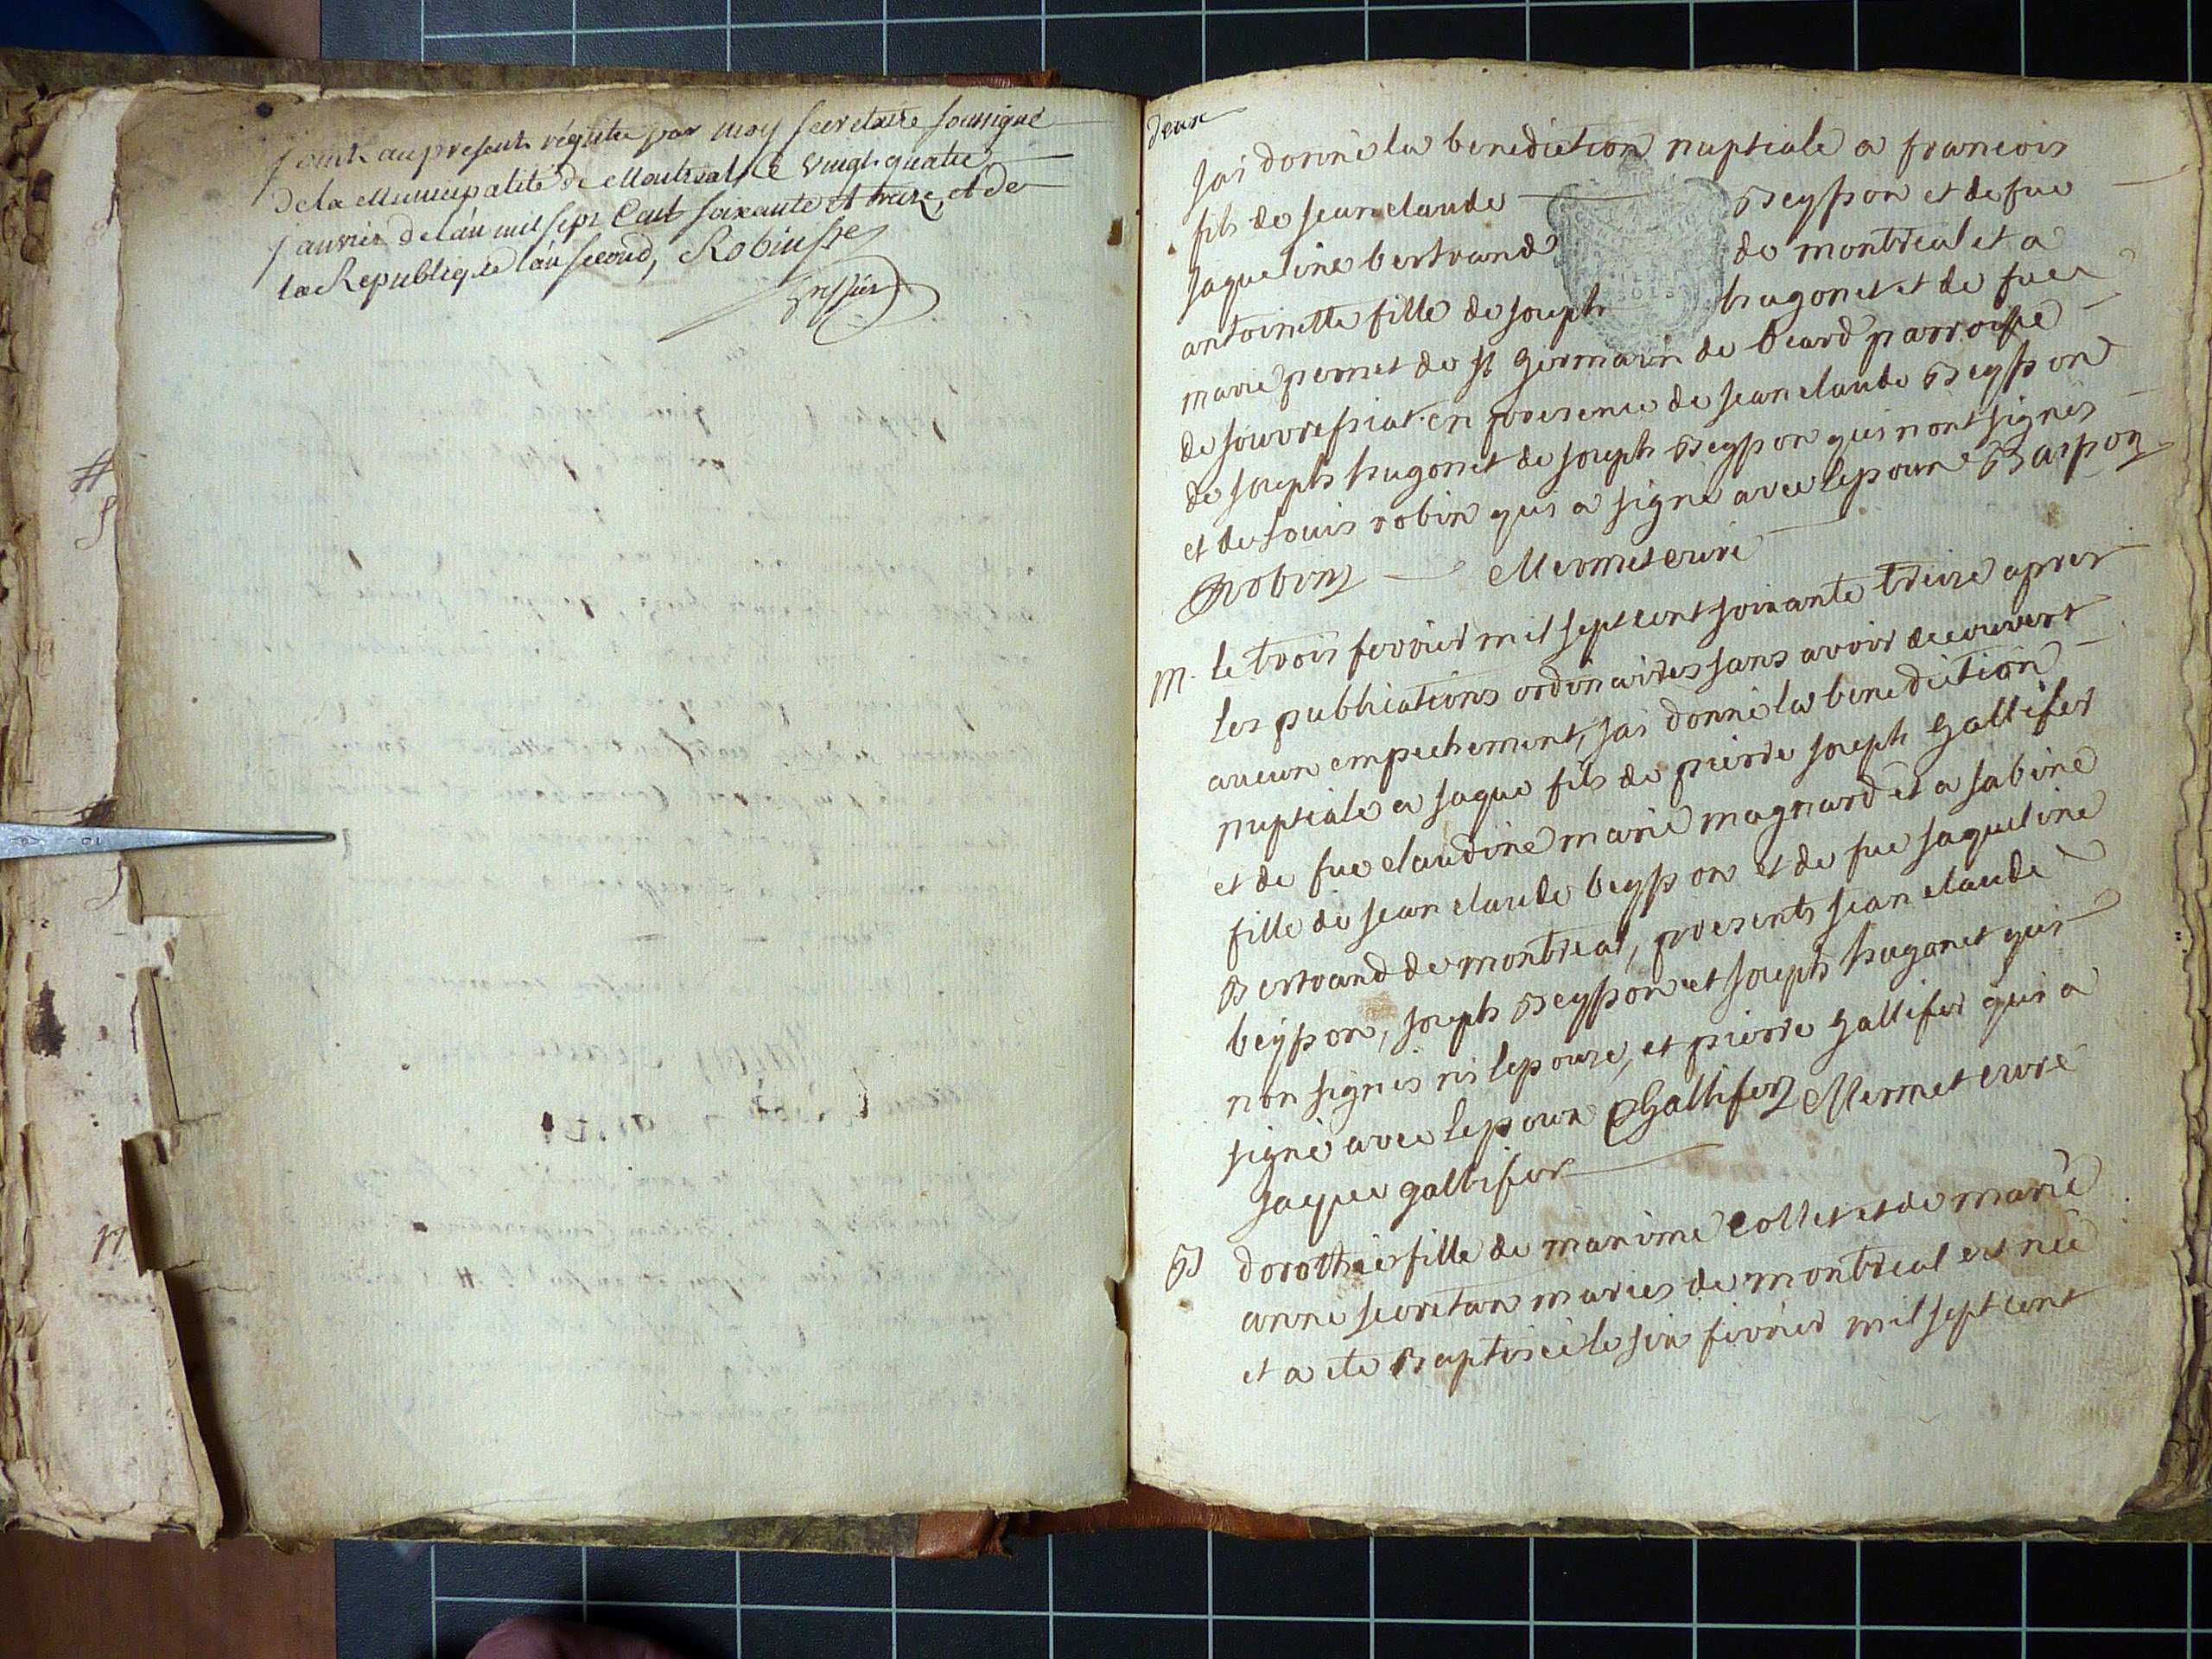 joint au present régistre par moy secretaire soussigné
de la Municipalité de Montreal, le vingt quatre
janvier de l'an mil sept cent soixante et treize, et de
la Republique l'an second, Robin fse
greffier
deux
jai donné la benediction nuptiale a francois
fils de jean claude Beysson et de fue
jaqueline bertrand de montreal et a
antoinette fille de joseph hugonet et de fue
marie pernet de st germain de beard parroisse
de souvressiat en presence de jean claude Beysson
de joseph hugonet de joseph Beysson qui n ont signés
et de louis robin qui a signé avec lepoux Baipon
Robin Mermet curé
M. le trois fevrier mil sept cent soixante treize apres
les publications ordinaires sans avoir decouvert
aucun empechement, jai donné la benediction
nuptiale a jaque fils de pierre joseph gallifer
et de fue claudine marie magnard et a sabine
fille de jean claude beysson et de fue jaqueline
Bertrand de montreal, presents jean claude
beysson, joseph Beysson et joseph hugonet qui
non signés ni lepouse, et pierre gallifer qui a
signé avec lepoux PGallifer Mermet curé
jaque gallifer
B dorothée fille de maxime collet et de marie
anne secretan mariés de montreal est née
et a ete Baptisée le six fevrier mil sept cent